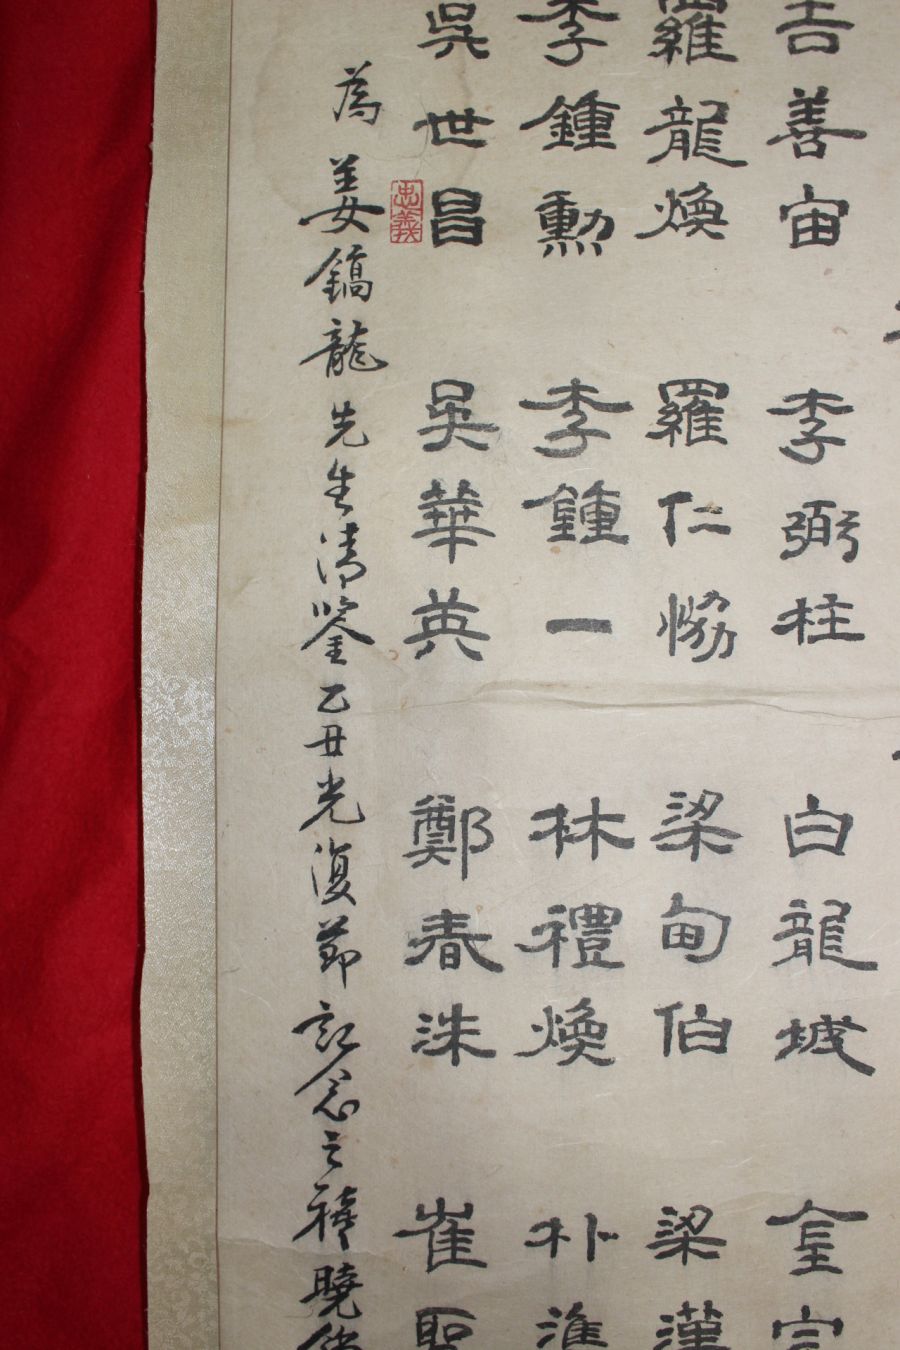 吉善宙 李弼柱 白龍城 金宗
羅龍煥 羅仁協 梁甸伯 梁漢
李鍾勳 李鍾一 林禮煥 朴準
吳世昌 吳華英 鄭春洙 崔聖
忠義
為 姜鎬龍 先生清鑒 乙丑光復節記念之禧 曉